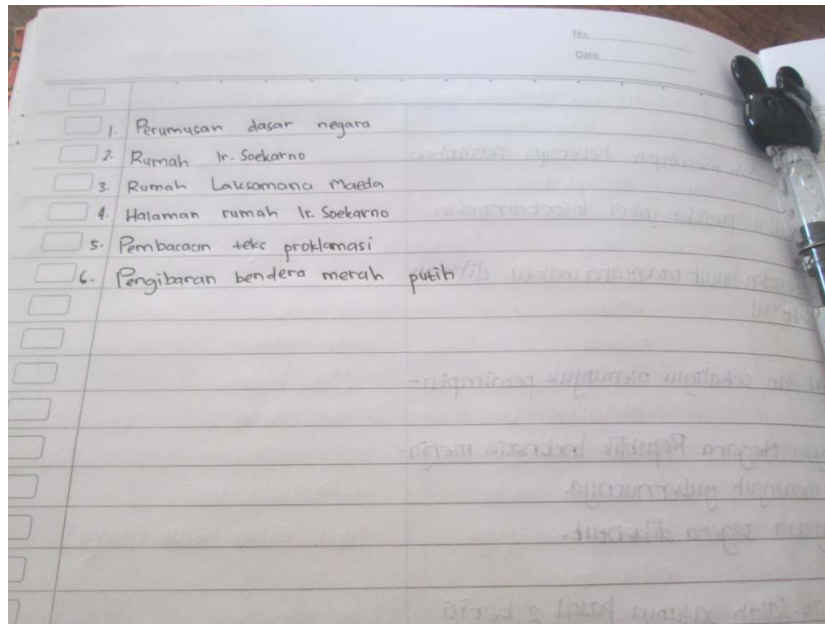 No.
Date:
1. Perumusan dasar negara
2. Rumah Ir. Soekarno
3. Rumah Laksamana Maeda
4. Halaman rumah Ir. Soekarno
5. Pembacaan teks proklamasi
6. Pengibaran bendera merah putih